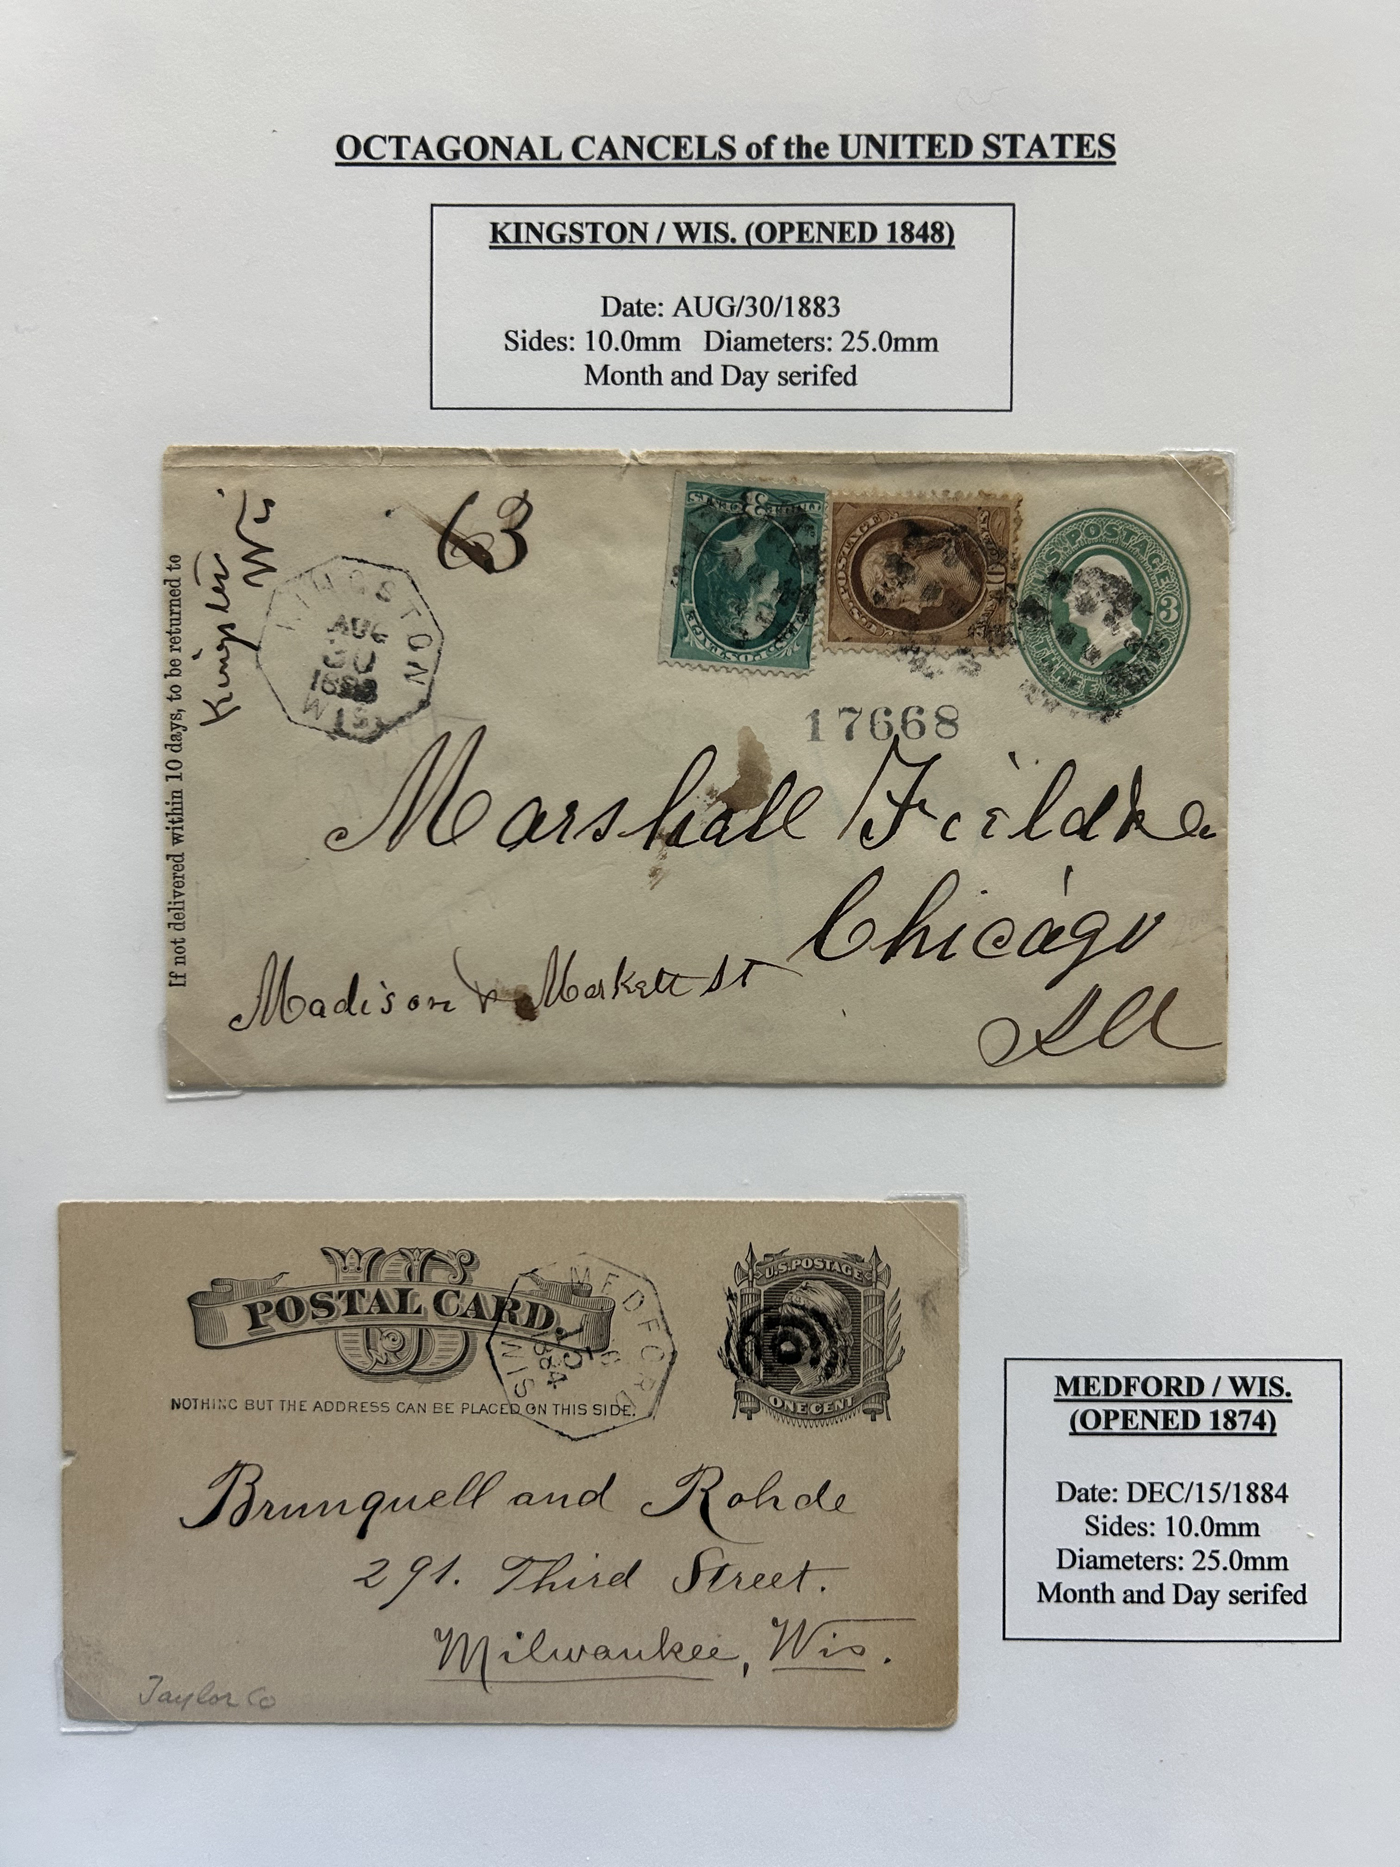 OCTAGONAL CANCELS of the UNITED STATES
KINGSTON / WIS. (OPENED 1848)
Date: AUG/30/1883
Sides: 10.0mm Diameters: 25.0mm
Month and Day serifed
If not delivered within 10 days, to be returned to
Kingston
Wis
63
KINGSTON
AUG
30
1883
WIS.
U.S. POSTAGE
3
17668
Marshall Field & Co
Chicago
Madison & Markett St
Ill
US
POSTAL CARD.
NOTHING BUT THE ADDRESS CAN BE PLACED ON THIS SIDE.
MEDFORD
15
1884
WIS
U.S. POSTAGE
ONE CENT
Brunquell and Rohde
291. Third Street.
Milwaukee, Wis.
Taylor Co
MEDFORD / WIS.
(OPENED 1874)
Date: DEC/15/1884
Sides: 10.0mm
Diameters: 25.0mm
Month and Day serifed